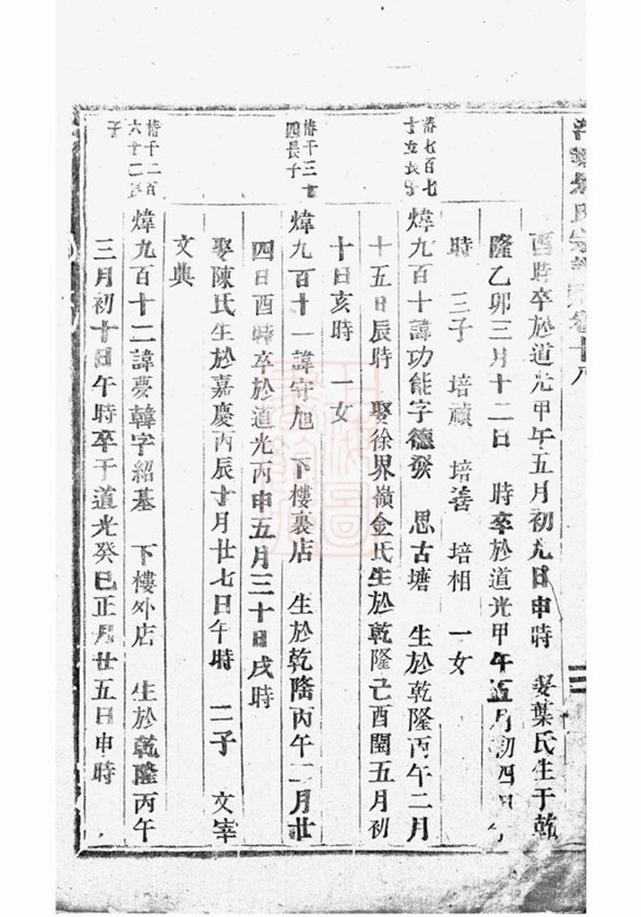 氏宗譜卷十八
酉時卒於道光甲午五月初九日申時 娶葉氏生于乾
隆乙卯三月十二日 時卒於道光甲午五月初四日午
時 三子 培禎 培善 培相 一女
椿七百七
十五長子
煒九百十諱功能字德發 思古塘 生於乾隆丙午二月
十五日辰時 娶徐界嶺金氏生於乾隆己酉閏五月初
十日亥時 一女
椿千三百
四長子
煒九百十一諱守旭 下樓裏店 生於乾隆丙午二月廿
四日酉時卒於道光丙申五月三十日戌時
娶陳氏生於嘉慶丙辰十月廿七日午時 二子 文宰
文典
椿千二百
六十二長
子
煒九百十二諱夢韓字紹基 下樓外店 生於乾隆丙午
三月初十日午時卒于道光癸巳正月廿五日申時